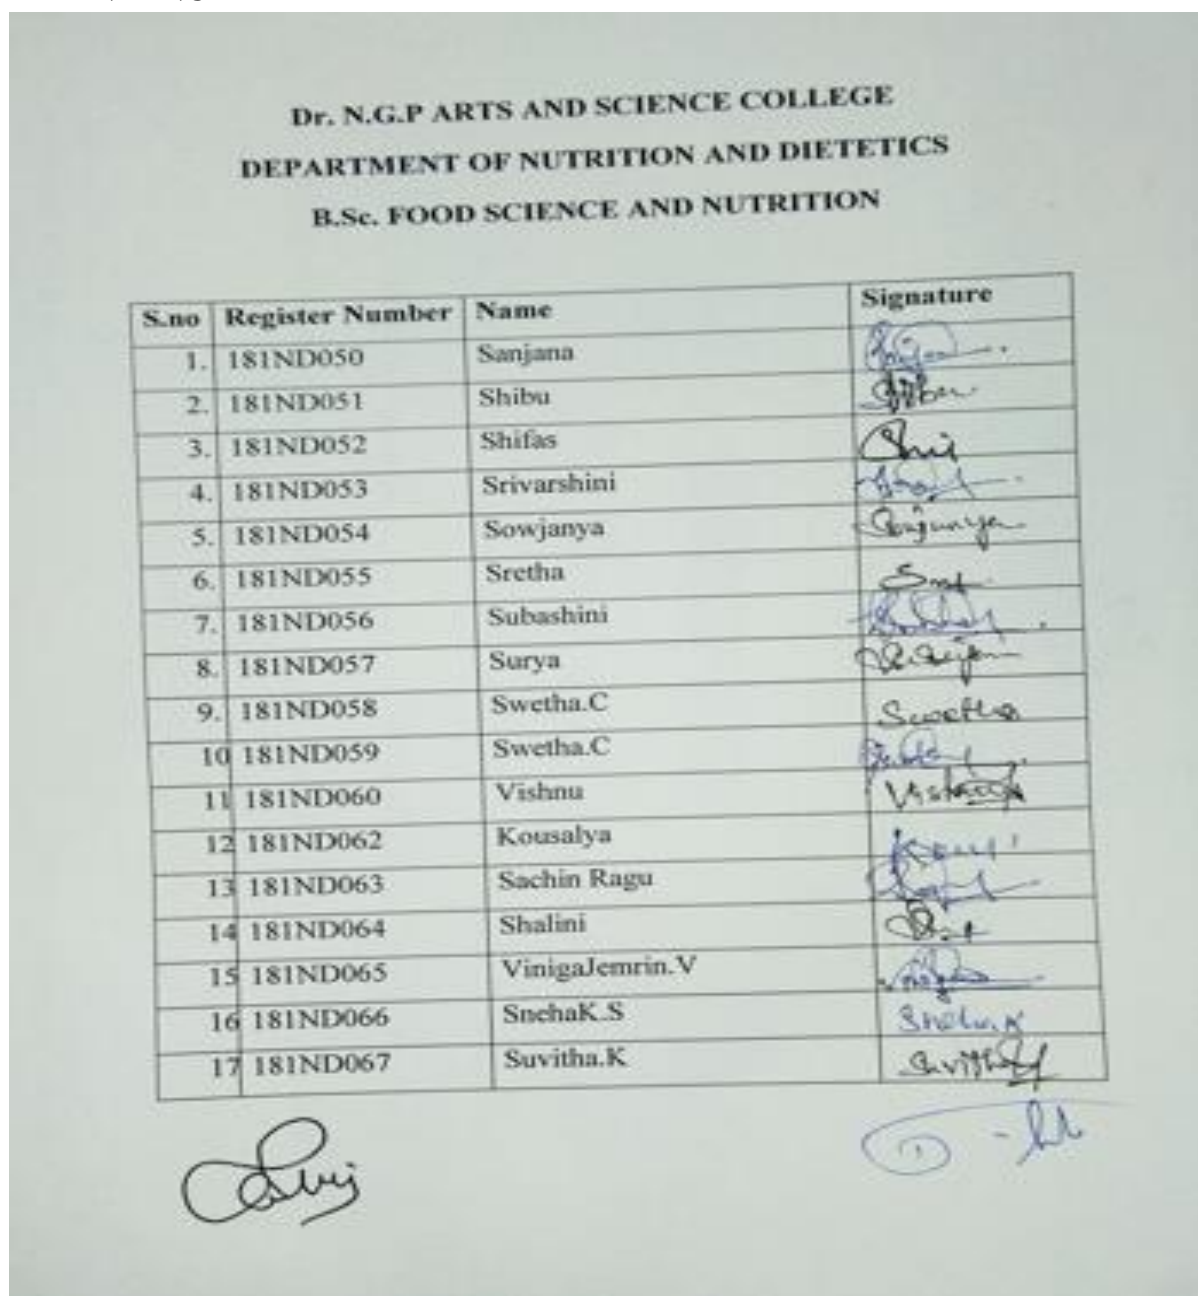 Dr. N.G.P ARTS AND SCIENCE COLLEGE
DEPARTMENT OF NUTRITION AND DIETETICS
B.Sc. FOOD SCIENCE AND NUTRITION
S.no Register Number Name Signature
1. 181ND050 Sanjana
2. 181ND051 Shibu
3. 181ND052 Shifas
4. 181ND053 Srivarshini
5. 181ND054 Sowjanya
6. 181ND055 Sretha
7. 181ND056 Subashini
8. 181ND057 Surya
9. 181ND058 Swetha.C Swetha
10 181ND059 Swetha.C
11 181ND060 Vishnu
12 181ND062 Kousalya
13 181ND063 Sachin Ragu
14 181ND064 Shalini
15 181ND065 VinigaJemrin.V
16 181ND066 SnehaK.S Sneha.K
17 181ND067 Suvitha.K